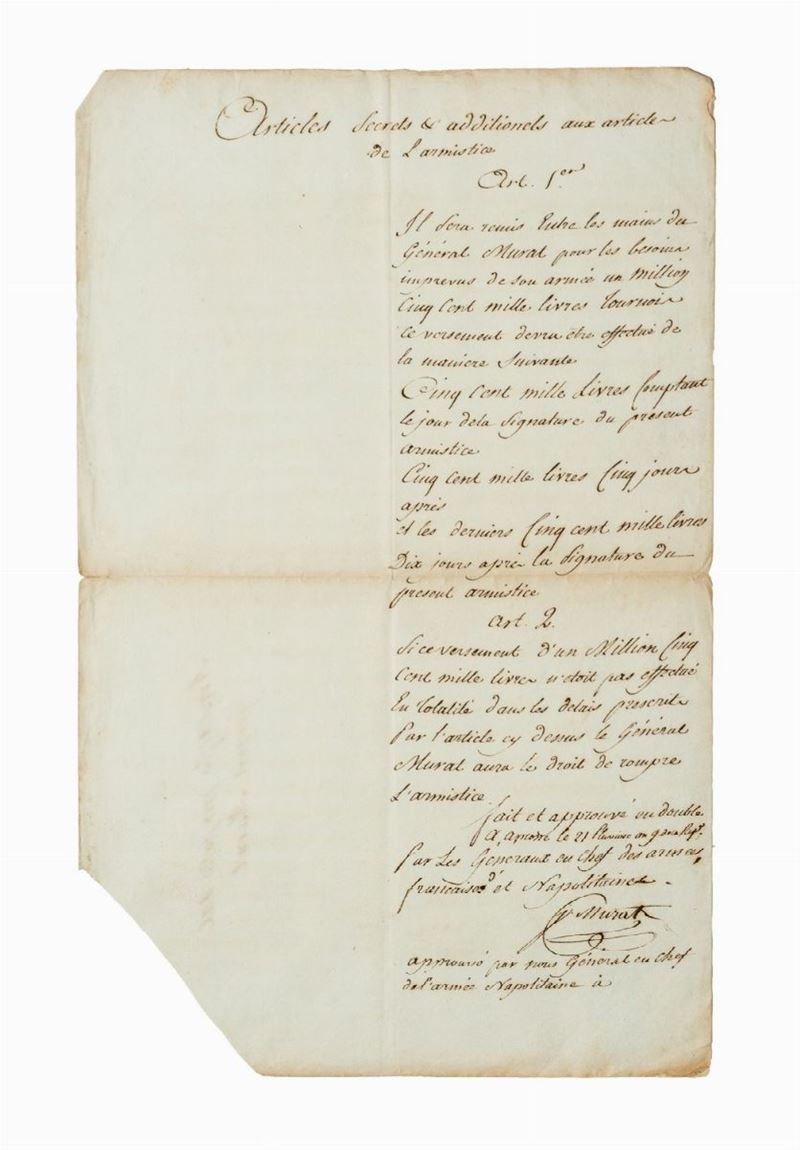 Articles Secrets & additionels aux article
de L'armistice
Art. 1.er
Il Sera remis Entre les mains du
Général Murat pour les besoins
imprevus de son armée un Million
Cinq Cent mille livres Tournois
Ce versement devra être effectué de
la maniere Suivante
Cinq Cent mille Livres Comptant
le jour dela Signature du present
armistice
Cinq Cent mille livres Cinq jours
après
et les derniers Cinq Cent mille livres
Dix jours après la Signature du
present armistice
Art. 2.
Si ce versement d'un Million Cinq
Cent mille livres n'etoit pas effectué
En Totalité dans les delais prescrits
Par l'article cy dessus le Général
Murat aura le droit de rompre
L'armistice
fait et approuvé en double
le 21 Pluviose an 9
Par Les Généraux en Chef des armées
françaises et Napolitaines
Murat
approuvé par nous Général en Chef
de l'armée Napolitaine à